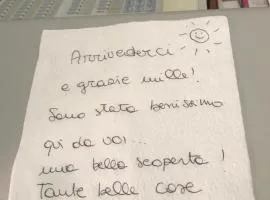 Arrivederci
e grazie mille!
Sono stata benissimo
qui da voi...
una bella scoperta!
Tante belle cose